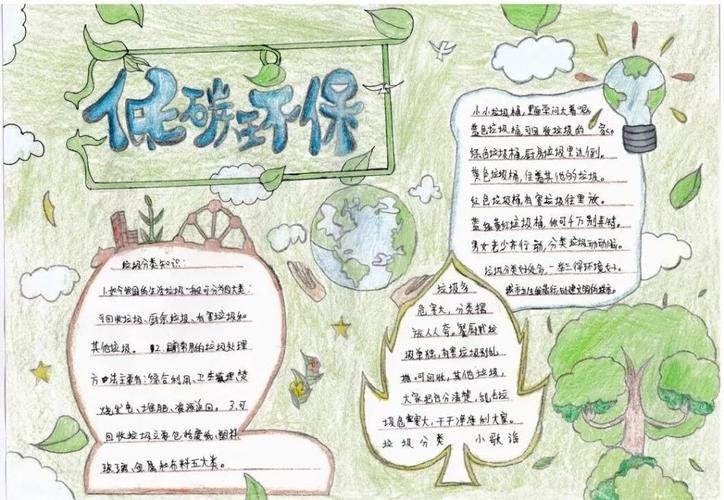 低碳环保
小小垃圾桶，里面学问大着呢。
蓝色垃圾桶，可回收垃圾的家。
绿色垃圾桶，厨房垃圾里边倒。
黄色垃圾桶，住着其他的垃圾。
红色垃圾桶，有害垃圾往里放。
蓝绿黄红垃圾桶，你可千万别弄错。
男女老少齐行动，分类垃圾动动脑。
垃圾分类
垃圾分类知识：
1.如今我国的生活垃圾一般可分为四大类：
可回收垃圾、厨余垃圾、有害垃圾和
其他垃圾。 2.目前常用的垃圾处理
方法主要有：综合利用、卫生填埋、焚
烧发电、堆肥、资源返回。 3.可
回收垃圾主要包括废纸、塑料
玻璃、金属和布料五大类。
垃圾多
危害大，分类摆
法人人夸。餐厨
圾单独，有害垃圾
可回收，其他垃圾，
大家把它分清楚，
圾危害大，干干净净利大家。
垃圾分类 小歌谣